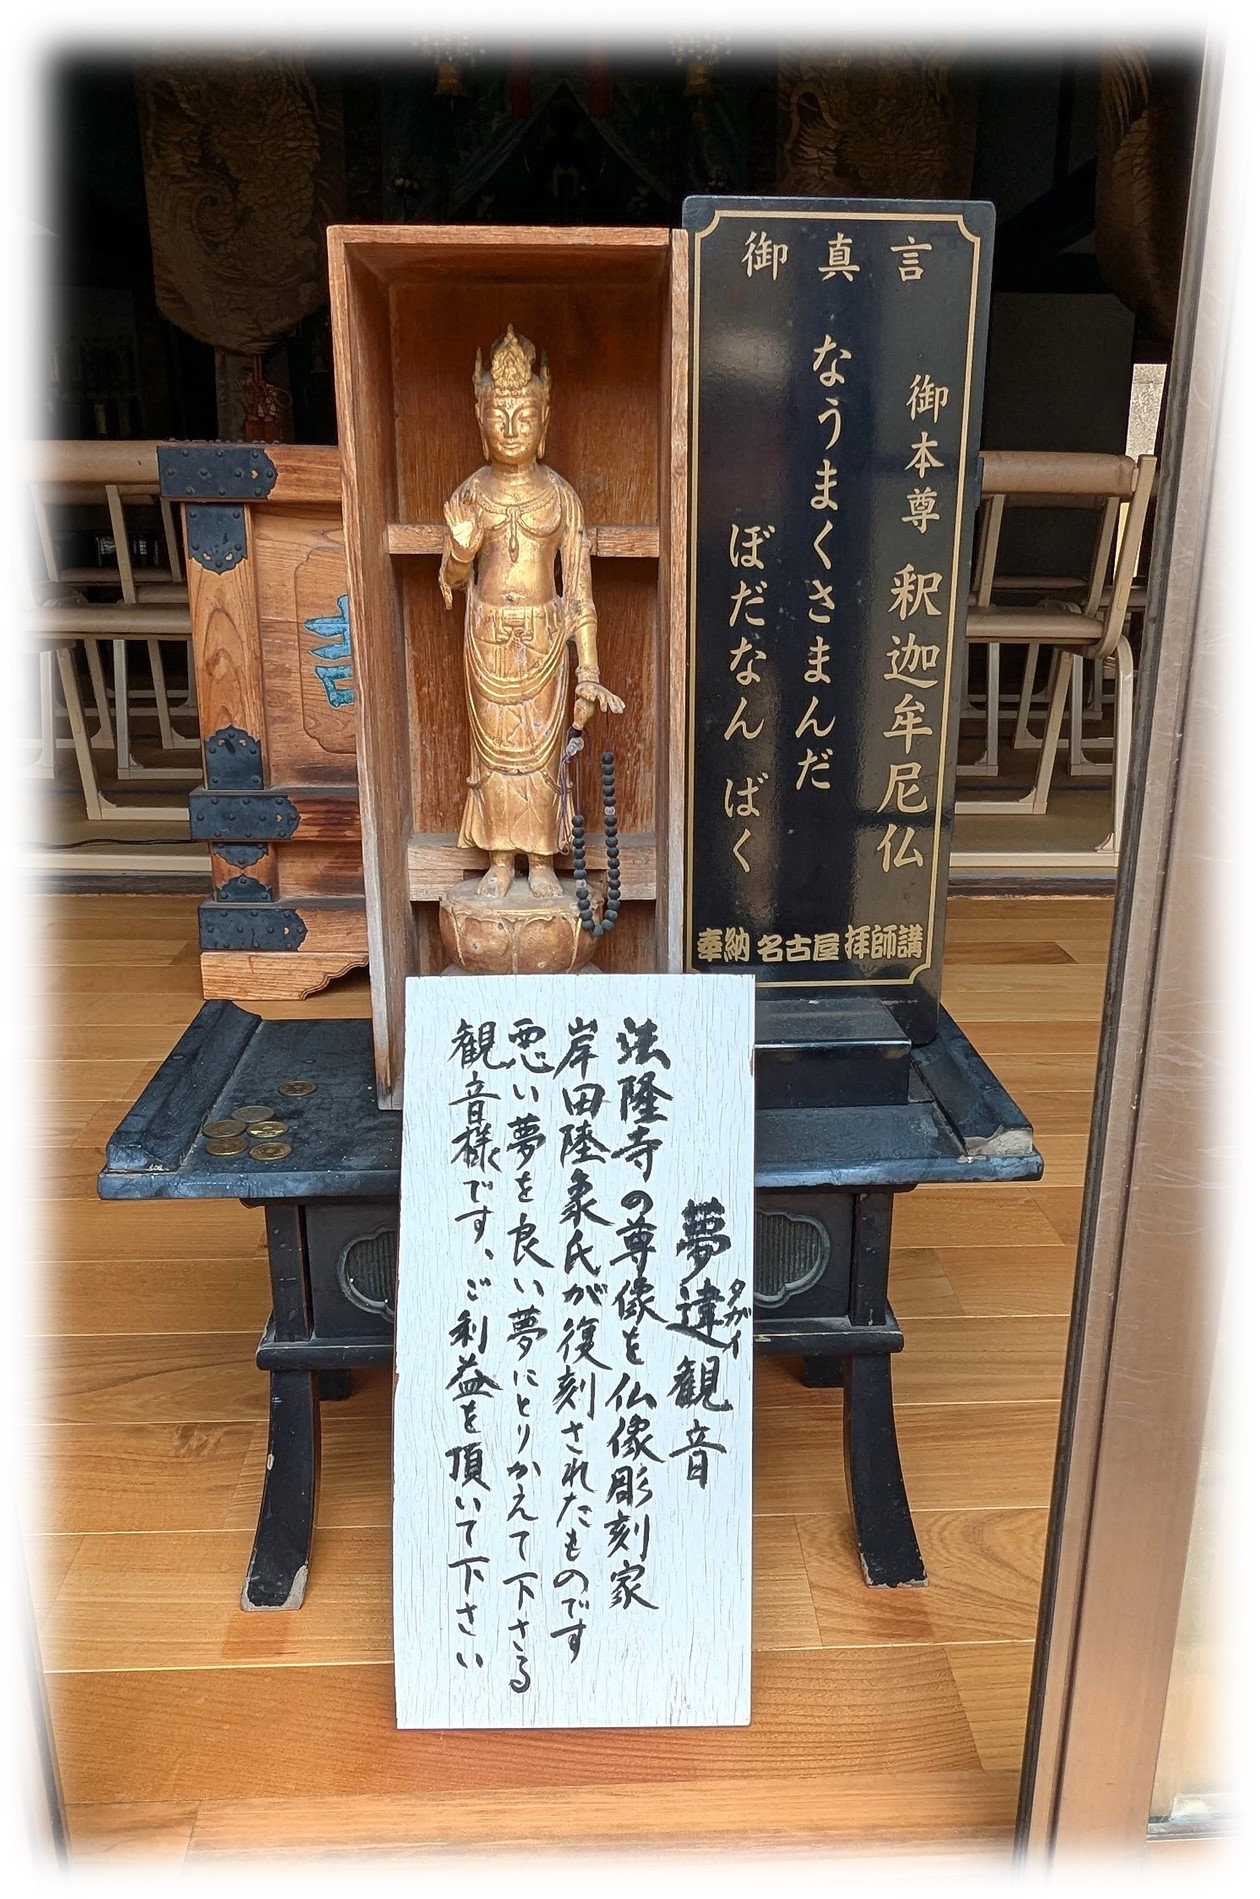 御真言
御本尊 釈迦牟尼仏
なうまくさまんだ
ぼだなん ばく
奉納 名古屋 拝師講
夢違観音
タガイ
法隆寺の尊像を仏像彫刻家
岸田陸象氏が復刻されたものです
悪い夢を良い夢にとりかえて下さる
観音様です、ご利益を頂いて下さい